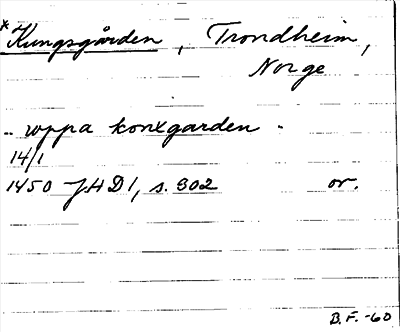 *Kungsgården, Trondheim,
Norge
.. uppa konxgarden -
14/1
1450 JHD 1, s. 302 or.
B.F.-60